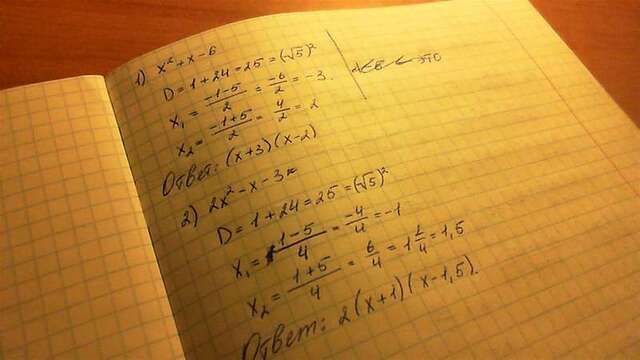 1) x²+x-6
D=1+24=25=(√5)²
x₁=(-1-5)/2=-6/2=-3.
x₂=(-1+5)/2=4/2=2
Ответ: (x+3)(x-2)
2) 2x²-x-3
D=1+24=25=(√5)²
x₁=(1-5)/4=-4/4=-1
x₂=(1+5)/4=6/4=1 2/4=1,5
Ответ: 2(x+1)(x-1,5).
← это